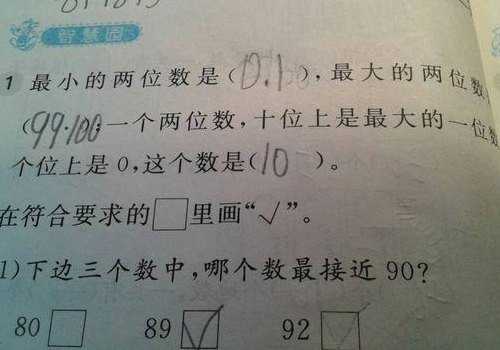 智慧园
1 最小的两位数是(0.1),最大的两位数
(99.100,一个两位数,十位上是最大的一位数
个位上是0,这个数是(10)。
在符合要求的□里画“√”。
1)下边三个数中,哪个数最接近90?
80□ 89☑ 92□